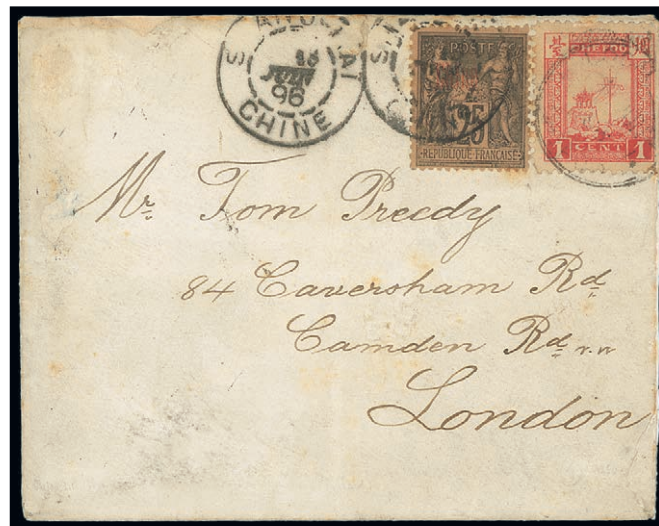 CHINE
JUIN
96
POSTE
25
REPUBLIQUE FRANCAISE
CHEFOO
1 CENT 1
Mr. Tom Preedy
84 Caversham Rd
Camden Rd N.W
London